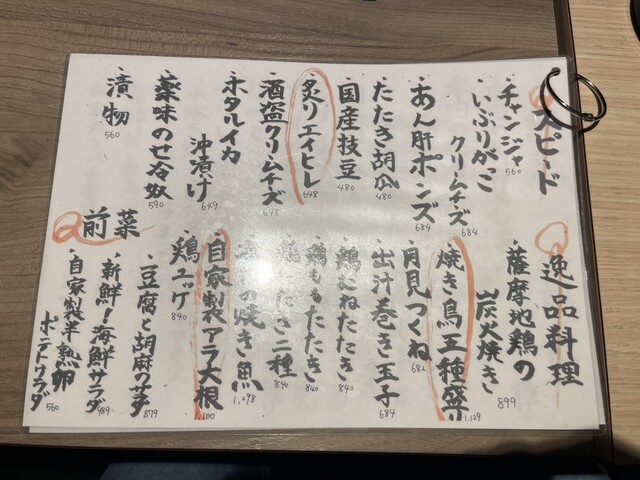 スピード
・チャンジャ 560
・いぶりがっこ
クリームチーズ 684
・あん肝ポンズ 684
・たたき胡瓜 480
・国産枝豆 480
・炙りエイヒレ 648
・酒盗クリームチーズ 648
・ホタルイカ
沖漬け 649
・薬味のせ冷奴 590
・漬物 560
逸品料理
・薩摩地鶏の
炭火焼き 899
・焼き鳥五種盛り 1,129
・月見つくね 682
・出汁巻き玉子 684
・鶏むねたたき 840
・鶏ももたたき 840
たたき二種 840
の焼き魚 1,298
・自家製アラ大根
・鶏ユッケ 840
前菜
・豆腐と胡麻の 879
・新鮮!海鮮サラダ 989
・自家製半熟卵
ポテトサラダ 560